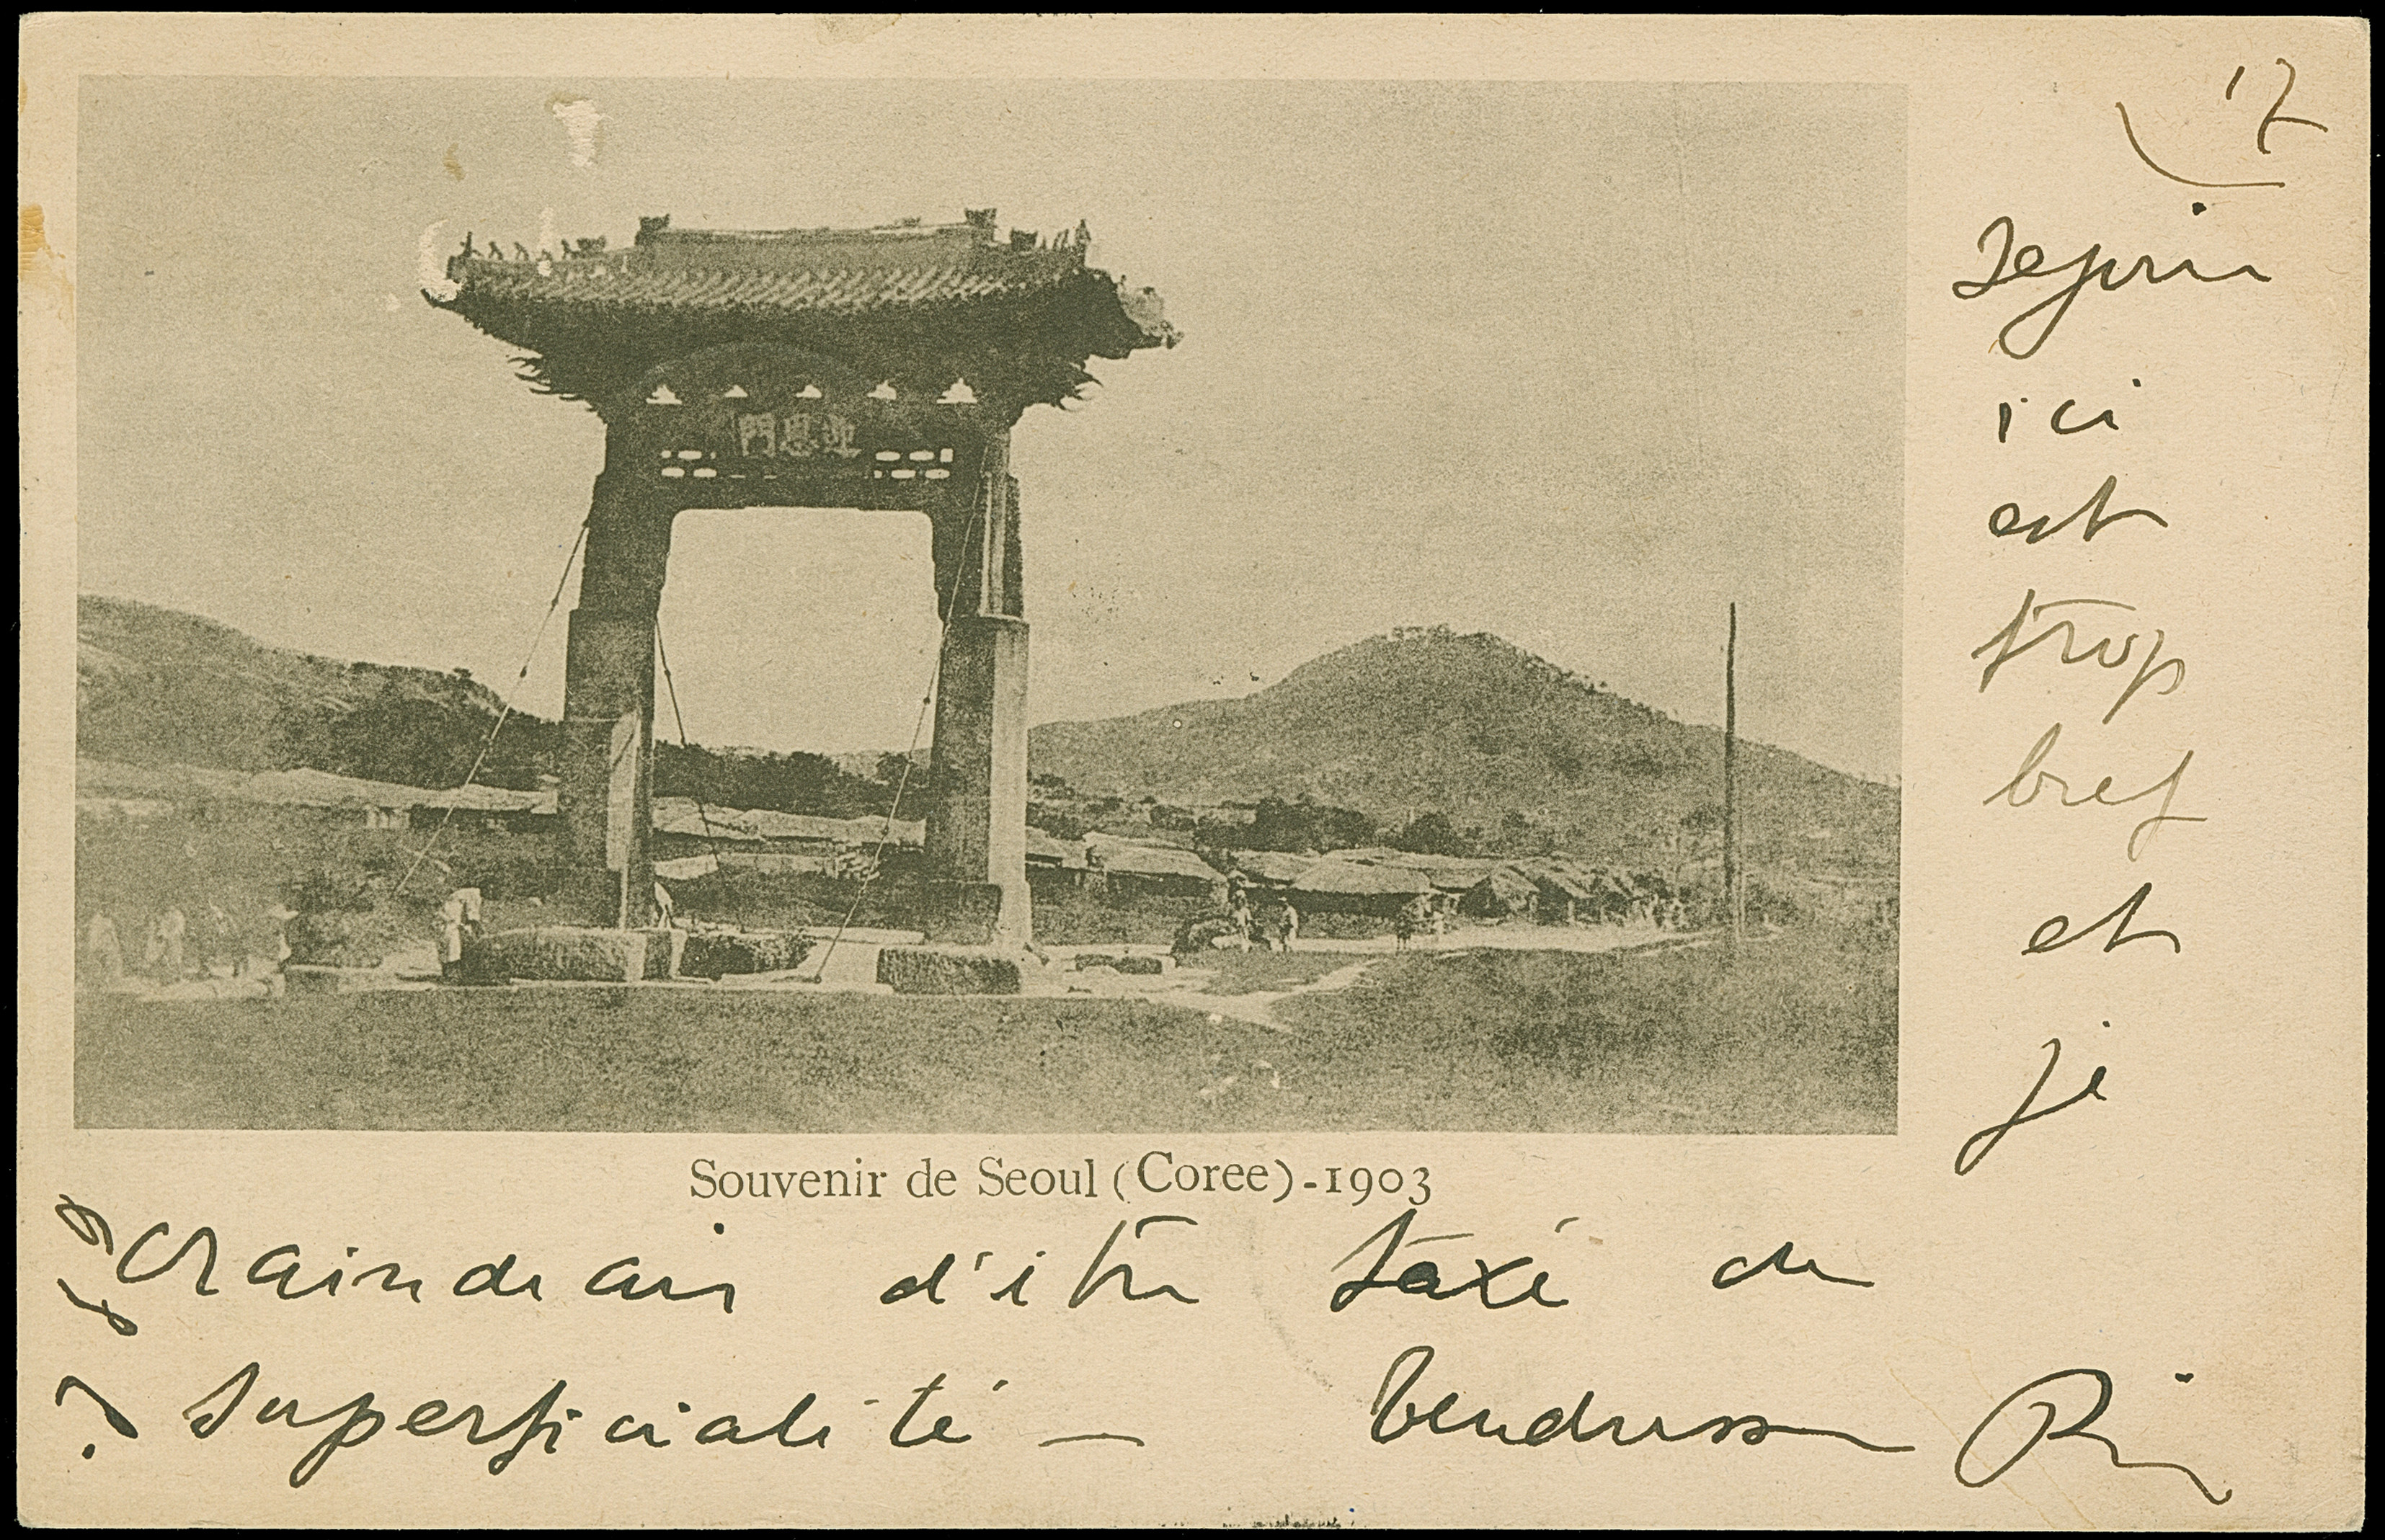 迎恩門
Souvenir de Seoul (Coree) - 1903
séjour
ici
est
trop
bref
et
je
craindrais d'être taxé de
superficialité — Tendresses